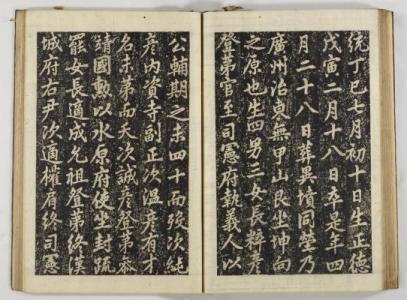 統丁巳七月初十日生正德
戊寅二月十八日卒是年四
月二十八日葬異墳同塋乃
廣州治東無甲山艮坐坤向
之原也生四男三女長彦
登第官至司憲府執義人以
公輔期之未四十而殁次純
彦内資寺副正次温彦有才
名未第而夭次誠彦登第叅
靖國勳以水原府使坐封䟽
罷女長適成允祖登第終漢
城府右尹次適權眉終司憲